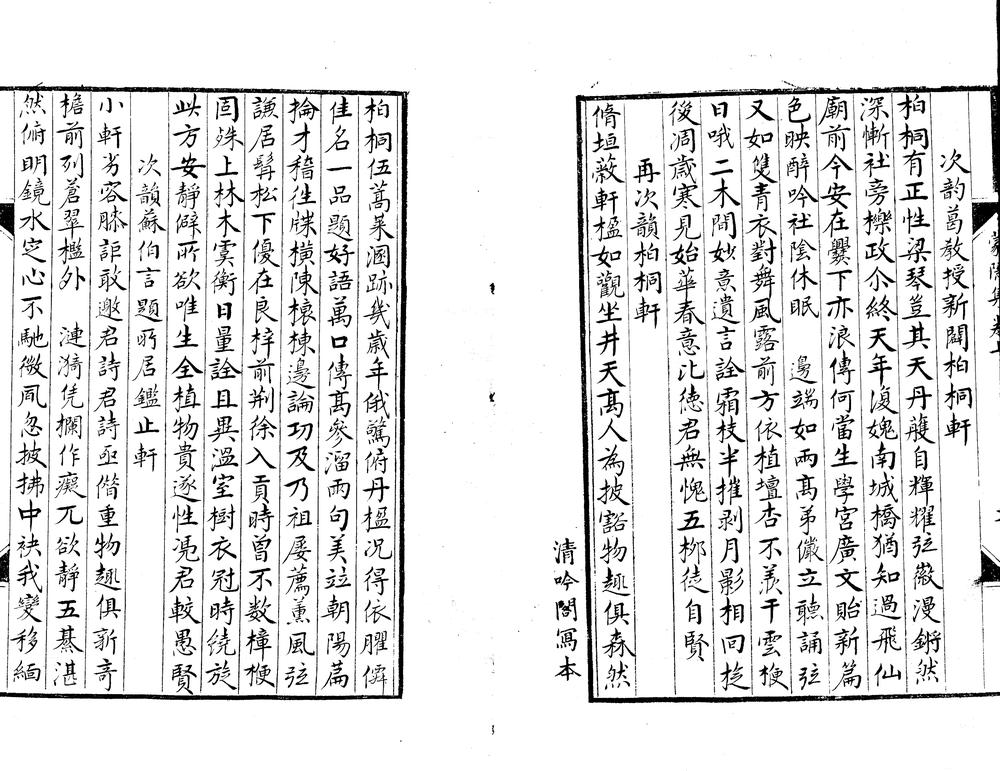 次韵葛敎授新闢柏桐軒
柏桐有正性梁琴豈其天丹雘自輝耀弦徽漫鏘然
深慚社旁櫟政尒終天年復媿南城橋猶知過飛仙
廟前今安在爨下亦浪傳何當生學宮廣文貽新篇
色映醉吟社陰休眠 邊端如兩髙弟儼立聽誦弦
又如雙青衣對舞風露前方依植壇杏不羨干雲梗
日哦二木間妙意遺言詮霜枝半摧剥月影相回旋
後凋歲寒見始華春意比徳君無愧五栁徒自賢
再次韻柏桐軒
脩垣蔽軒楹如觀坐井天髙人為披豁物趣俱森然
清吟閣寫本
柏桐伍蒿萊溷跡幾歳年俄驚俯丹楹况得依臞僊
佳名一品題好語萬口傳髙參溜雨句美竝朝陽篇
掄才稽徃牒橫陳榱棟邊論功及乃祖屡薦薰風弦
謙居髯松下優在良梓前荆徐入貢時曾不数樟梗
固殊上林木寞衡日量詮且異溫室樹衣冠時繞旋
此方安靜僻所欲唯生全植物貴遂性凴君較愚賢
次韻蘇伯言題所居鑑止軒
小軒劣容膝詎敢邀君詩君詩亟偕重物趣俱新竒
檐前列蒼翠檻外 漣漪凭欄作癡兀欲靜五綦湛
然俯明鏡水定心不馳微風忽披拂中袂我變移緬